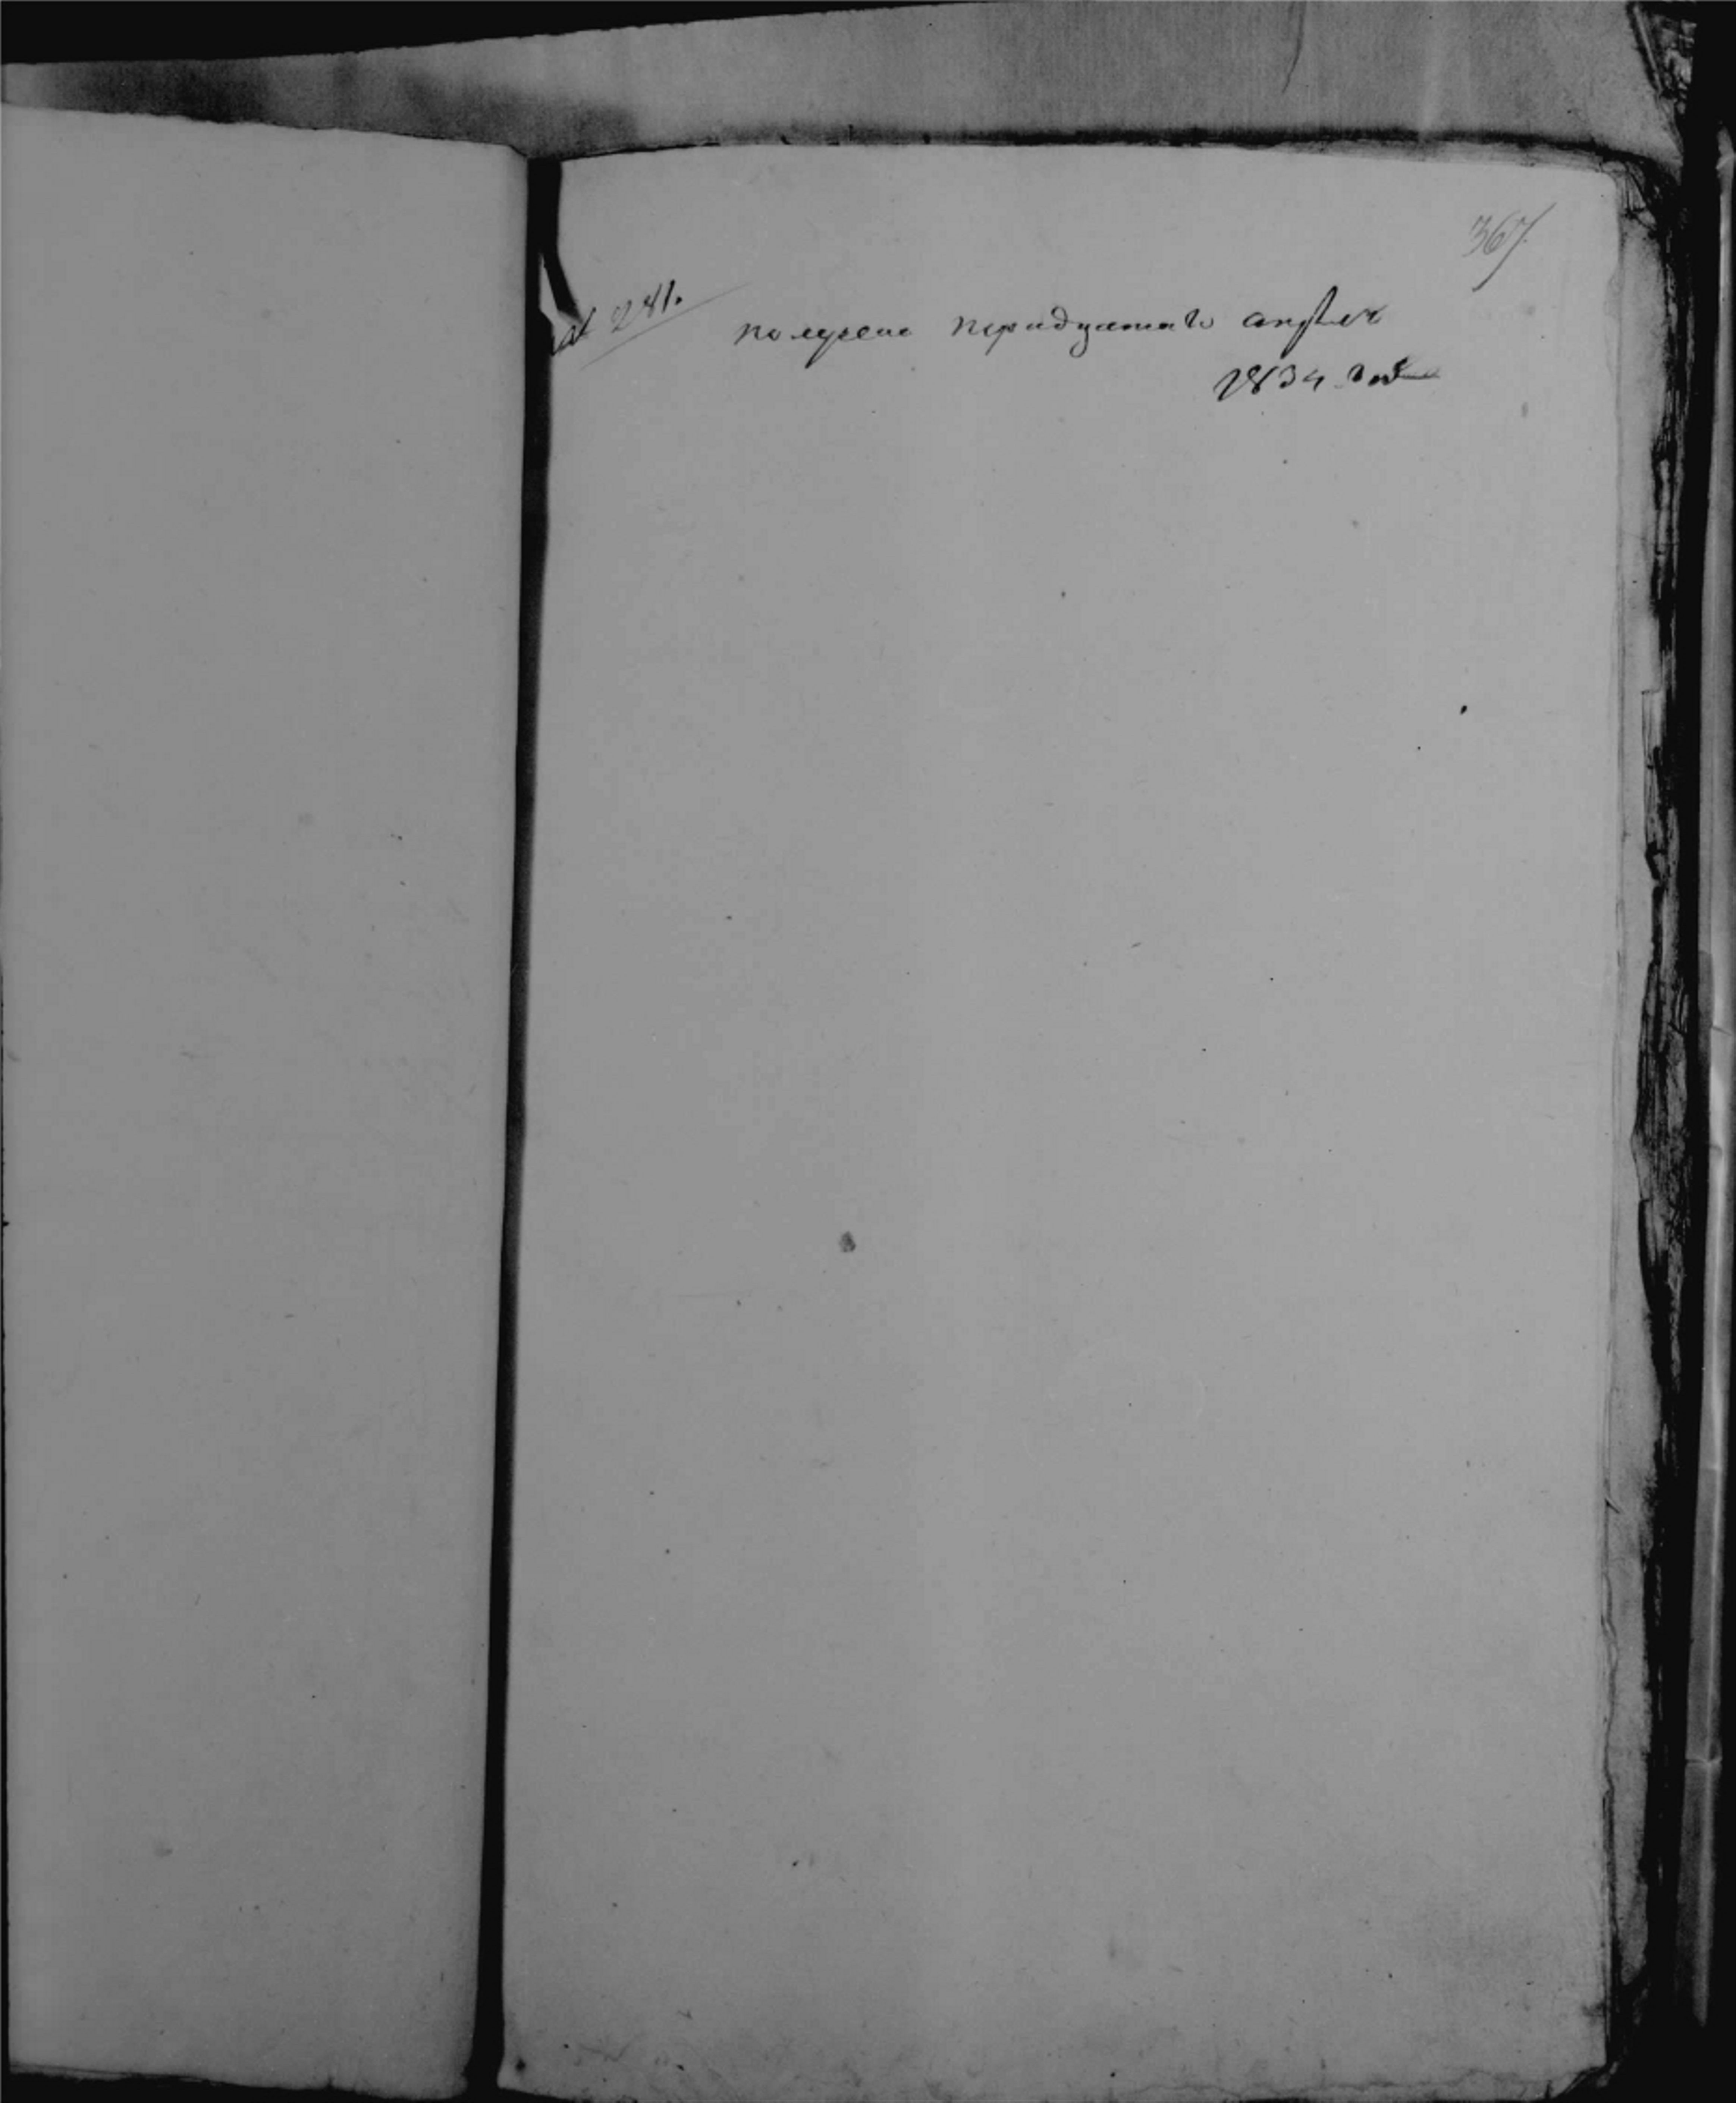 367
№ 241.
получено тридцатаго апреля
1834 года